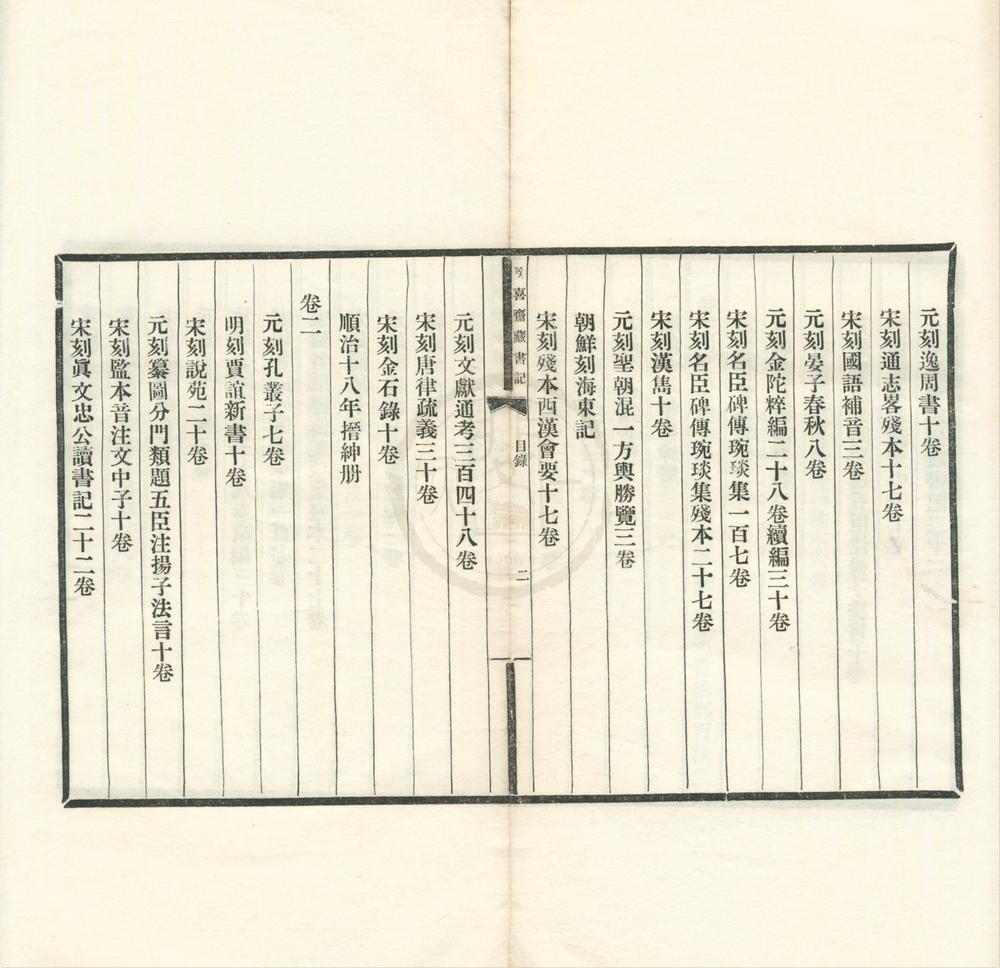 元刻逸周書十卷
宋刻通志畧殘本十七卷
宋刻國語補音三卷
元刻晏子春秋八卷
元刻金陀粹編二十八卷續編三十卷
宋刻名臣碑傳琬琰集一百七卷
宋刻名臣碑傳琬琰集殘本二十七卷
宋刻漢雋十卷
元刻聖朝混一方輿勝覽三卷
朝鮮刻海東記
宋刻殘本西漢會要十七卷
喜齋藏書記
目錄
二
元刻文獻通考三百四十八卷
宋刻唐律疏義三十卷
宋刻金石錄十卷
順治十八年搢紳册
卷二
元刻孔叢子七卷
明刻賈誼新書十卷
宋刻說苑二十卷
元刻纂圖分門類題五臣注揚子法言十卷
宋刻監本音注文中子十卷
宋刻眞文忠公讀書記二十二卷